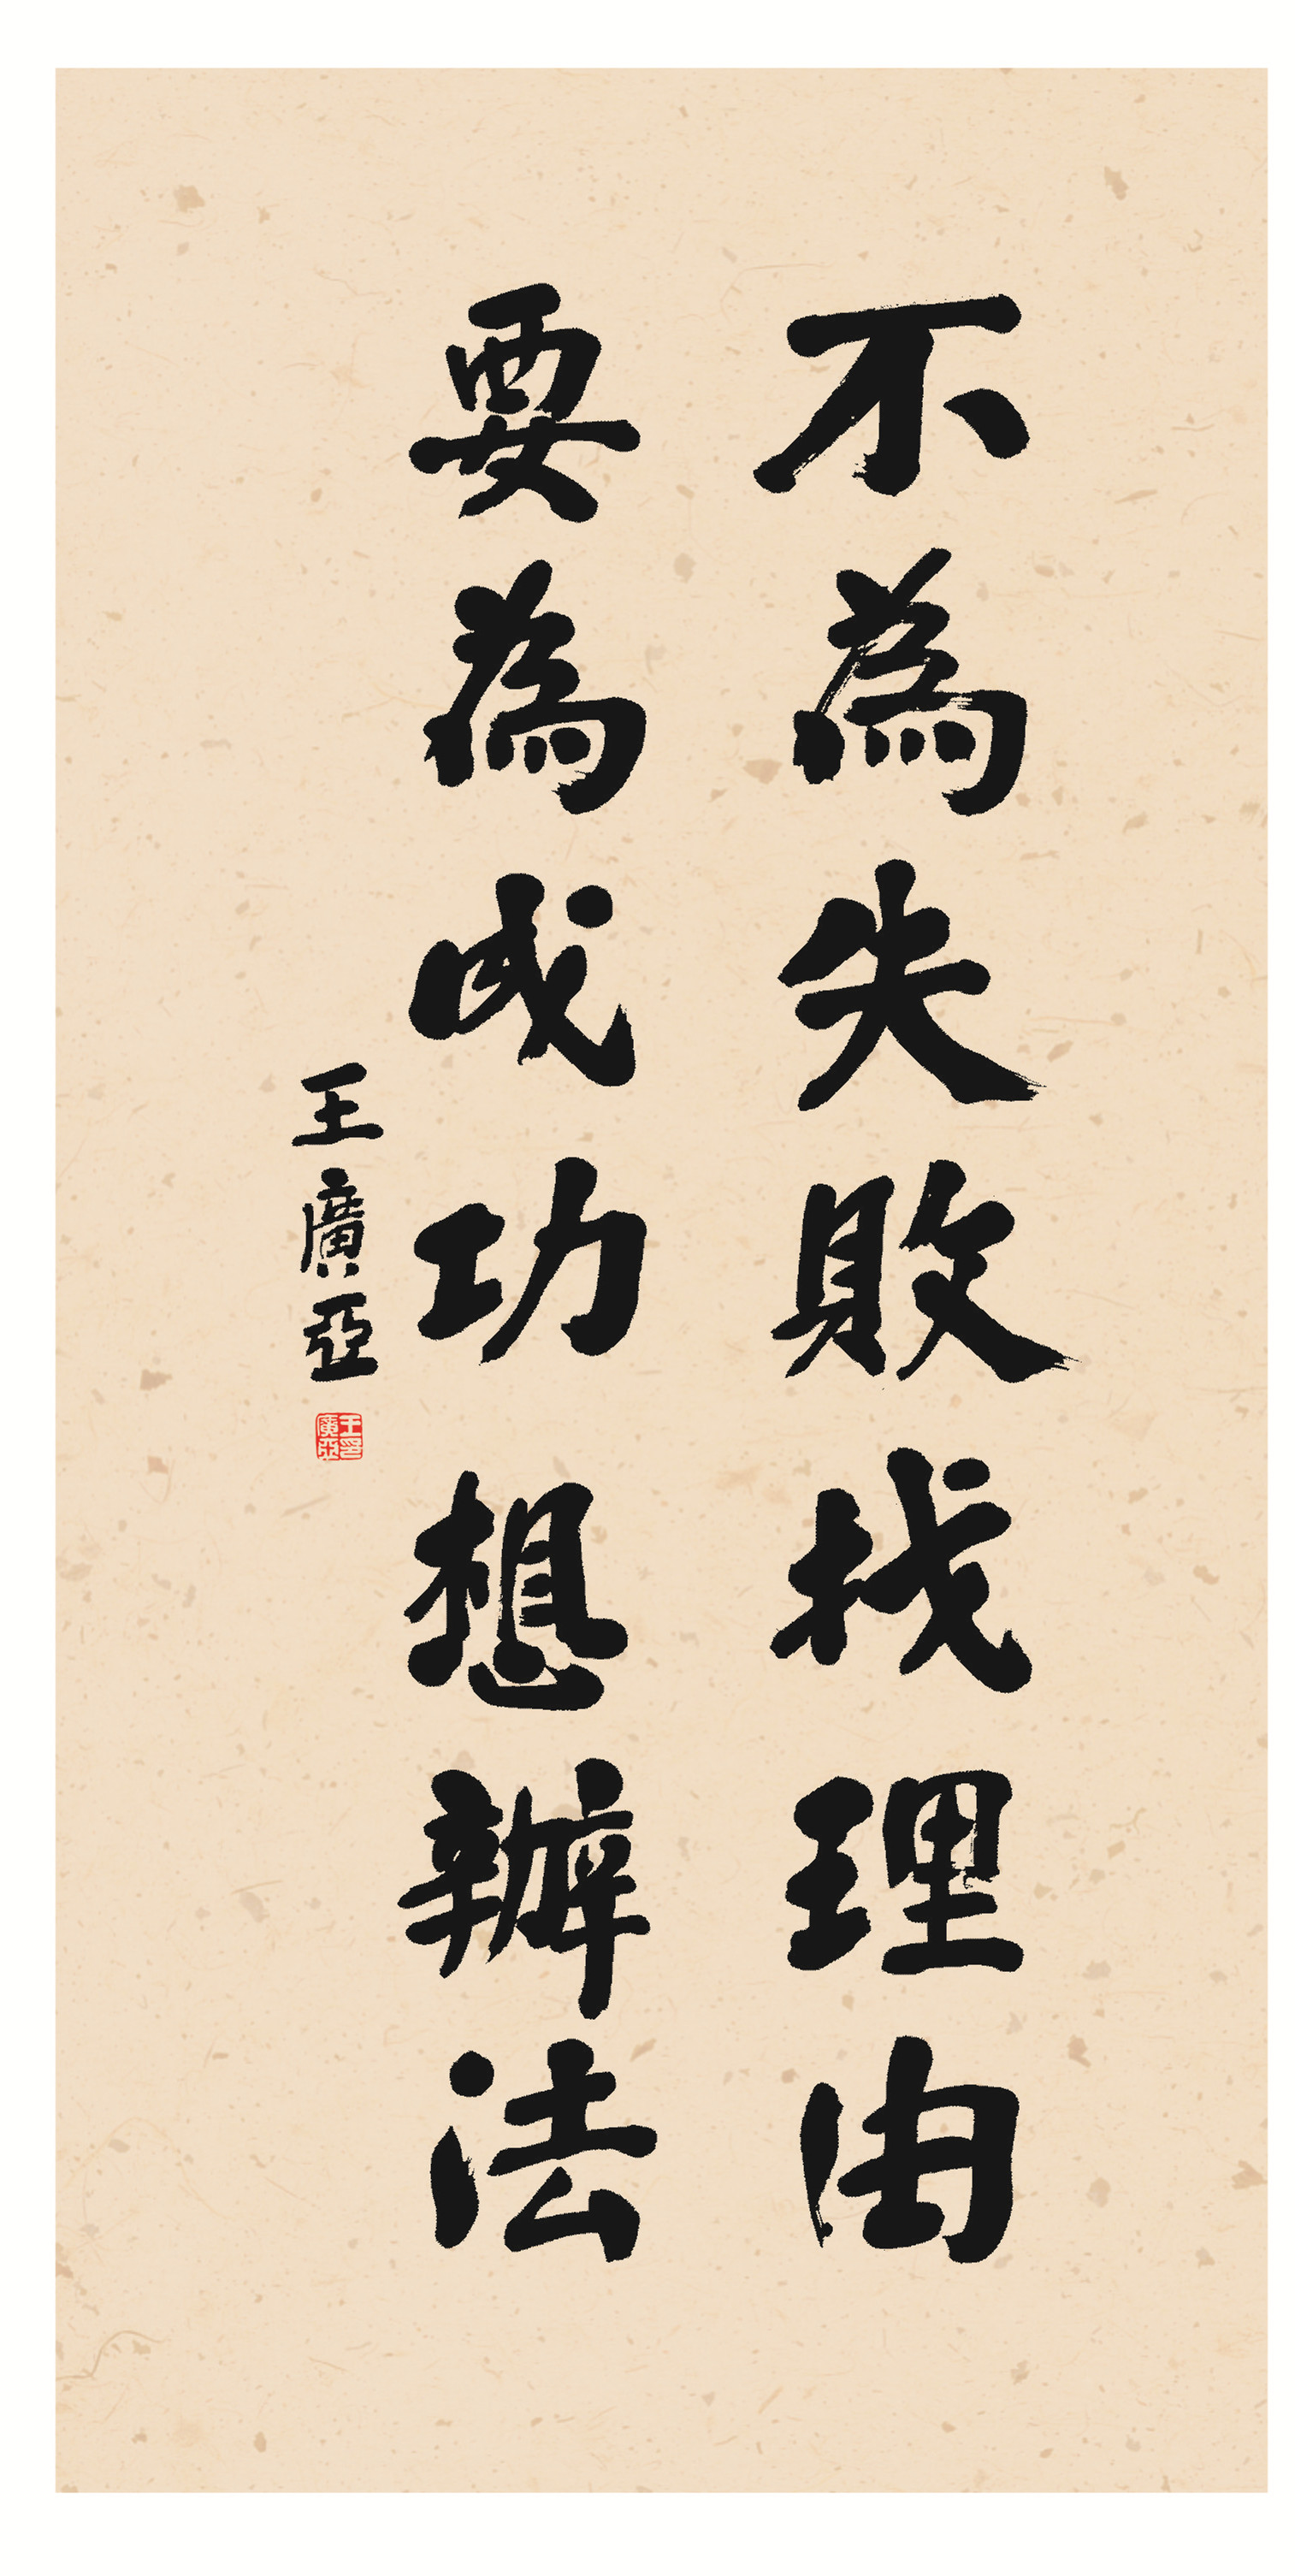 不為失敗找理由
要為成功想辦法
王廣亞
王印廣亞